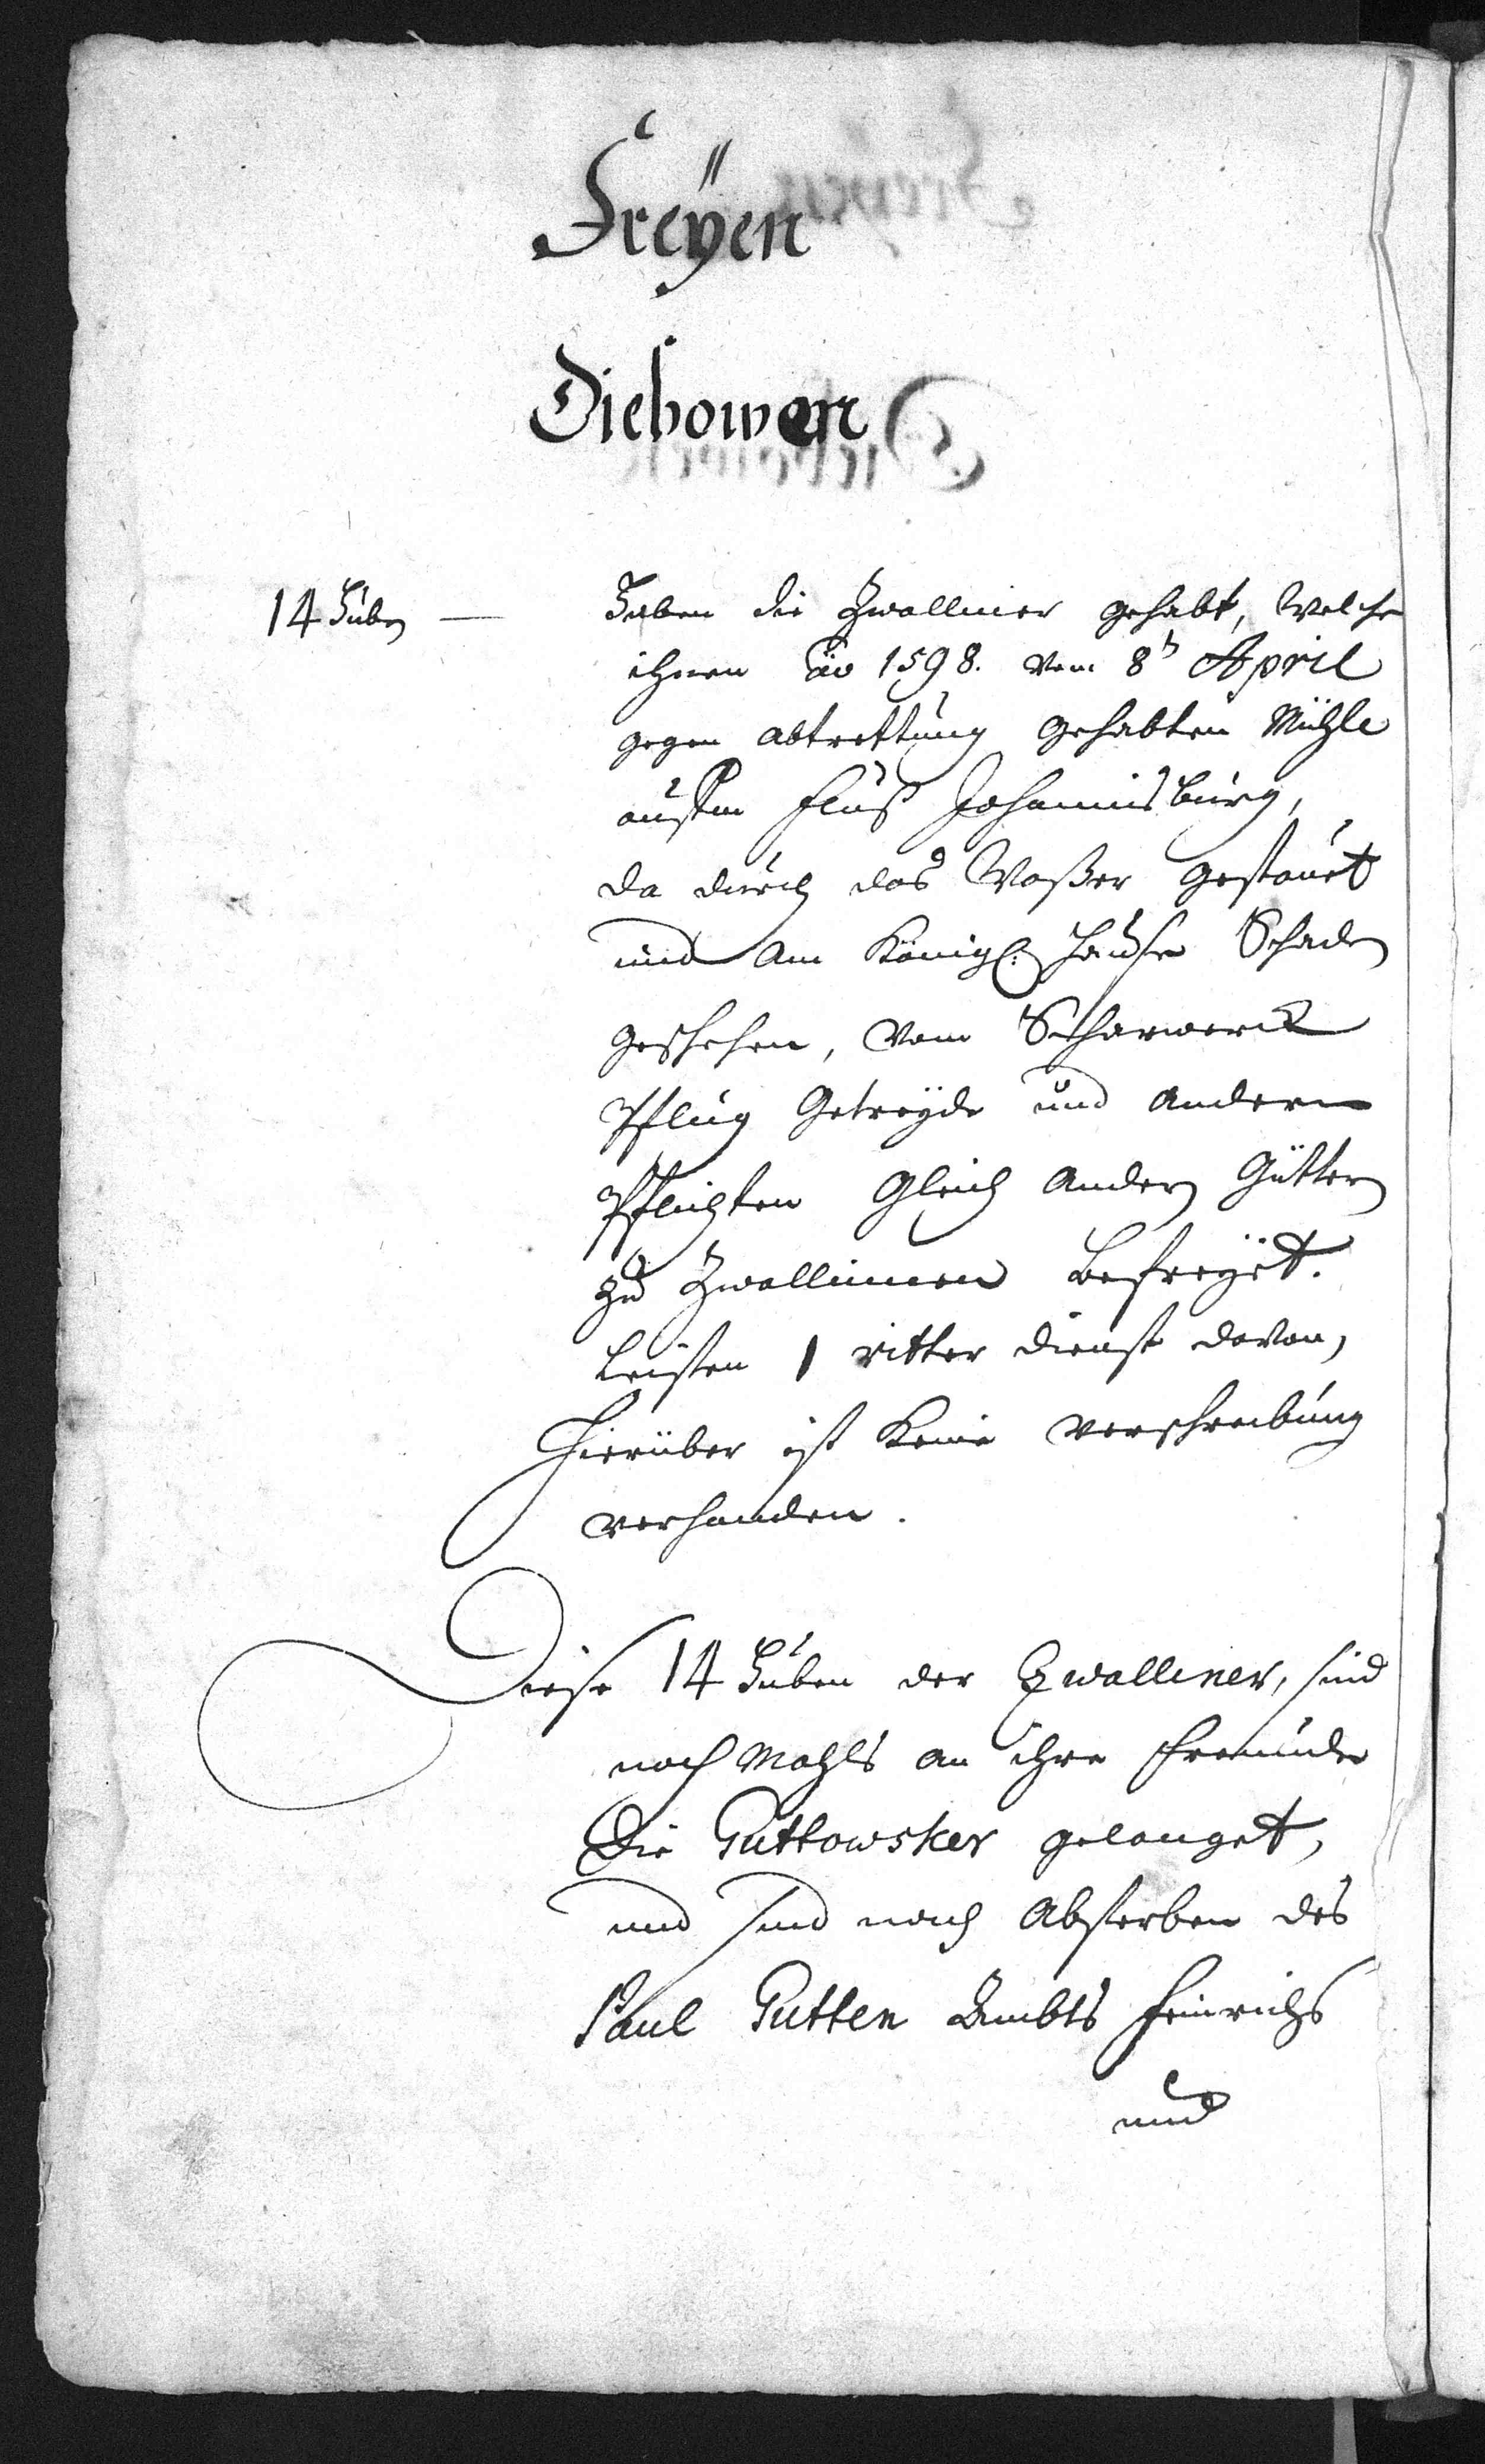 Freÿen
Diebowen
14 Huben — Haben die Zwalliner gehabt, Welche
ihnen aō 1598. vom 8t April
gegen abtrettung gehabten Mühle
außm Fluß Johannisburg,
da durch das Waßer gestauet
und am Königl: Hause Schaden
geschehen, vom Scharwerck
Pflug Getreÿde und andern
Pflichten Gleich andern Gütter
zu Zwallinnen befreÿet.
Leisten 1 ritter dienst davon,
Hierüber ist keine verschreibung
verhanden.
Diese 14 Huben der Zwalliner, sind
nach Mahls an ihre Freunde
Die Guttowsker gelanget,
und sind nach Absterben des
Paul Gutten Ambts Heinrichs
und